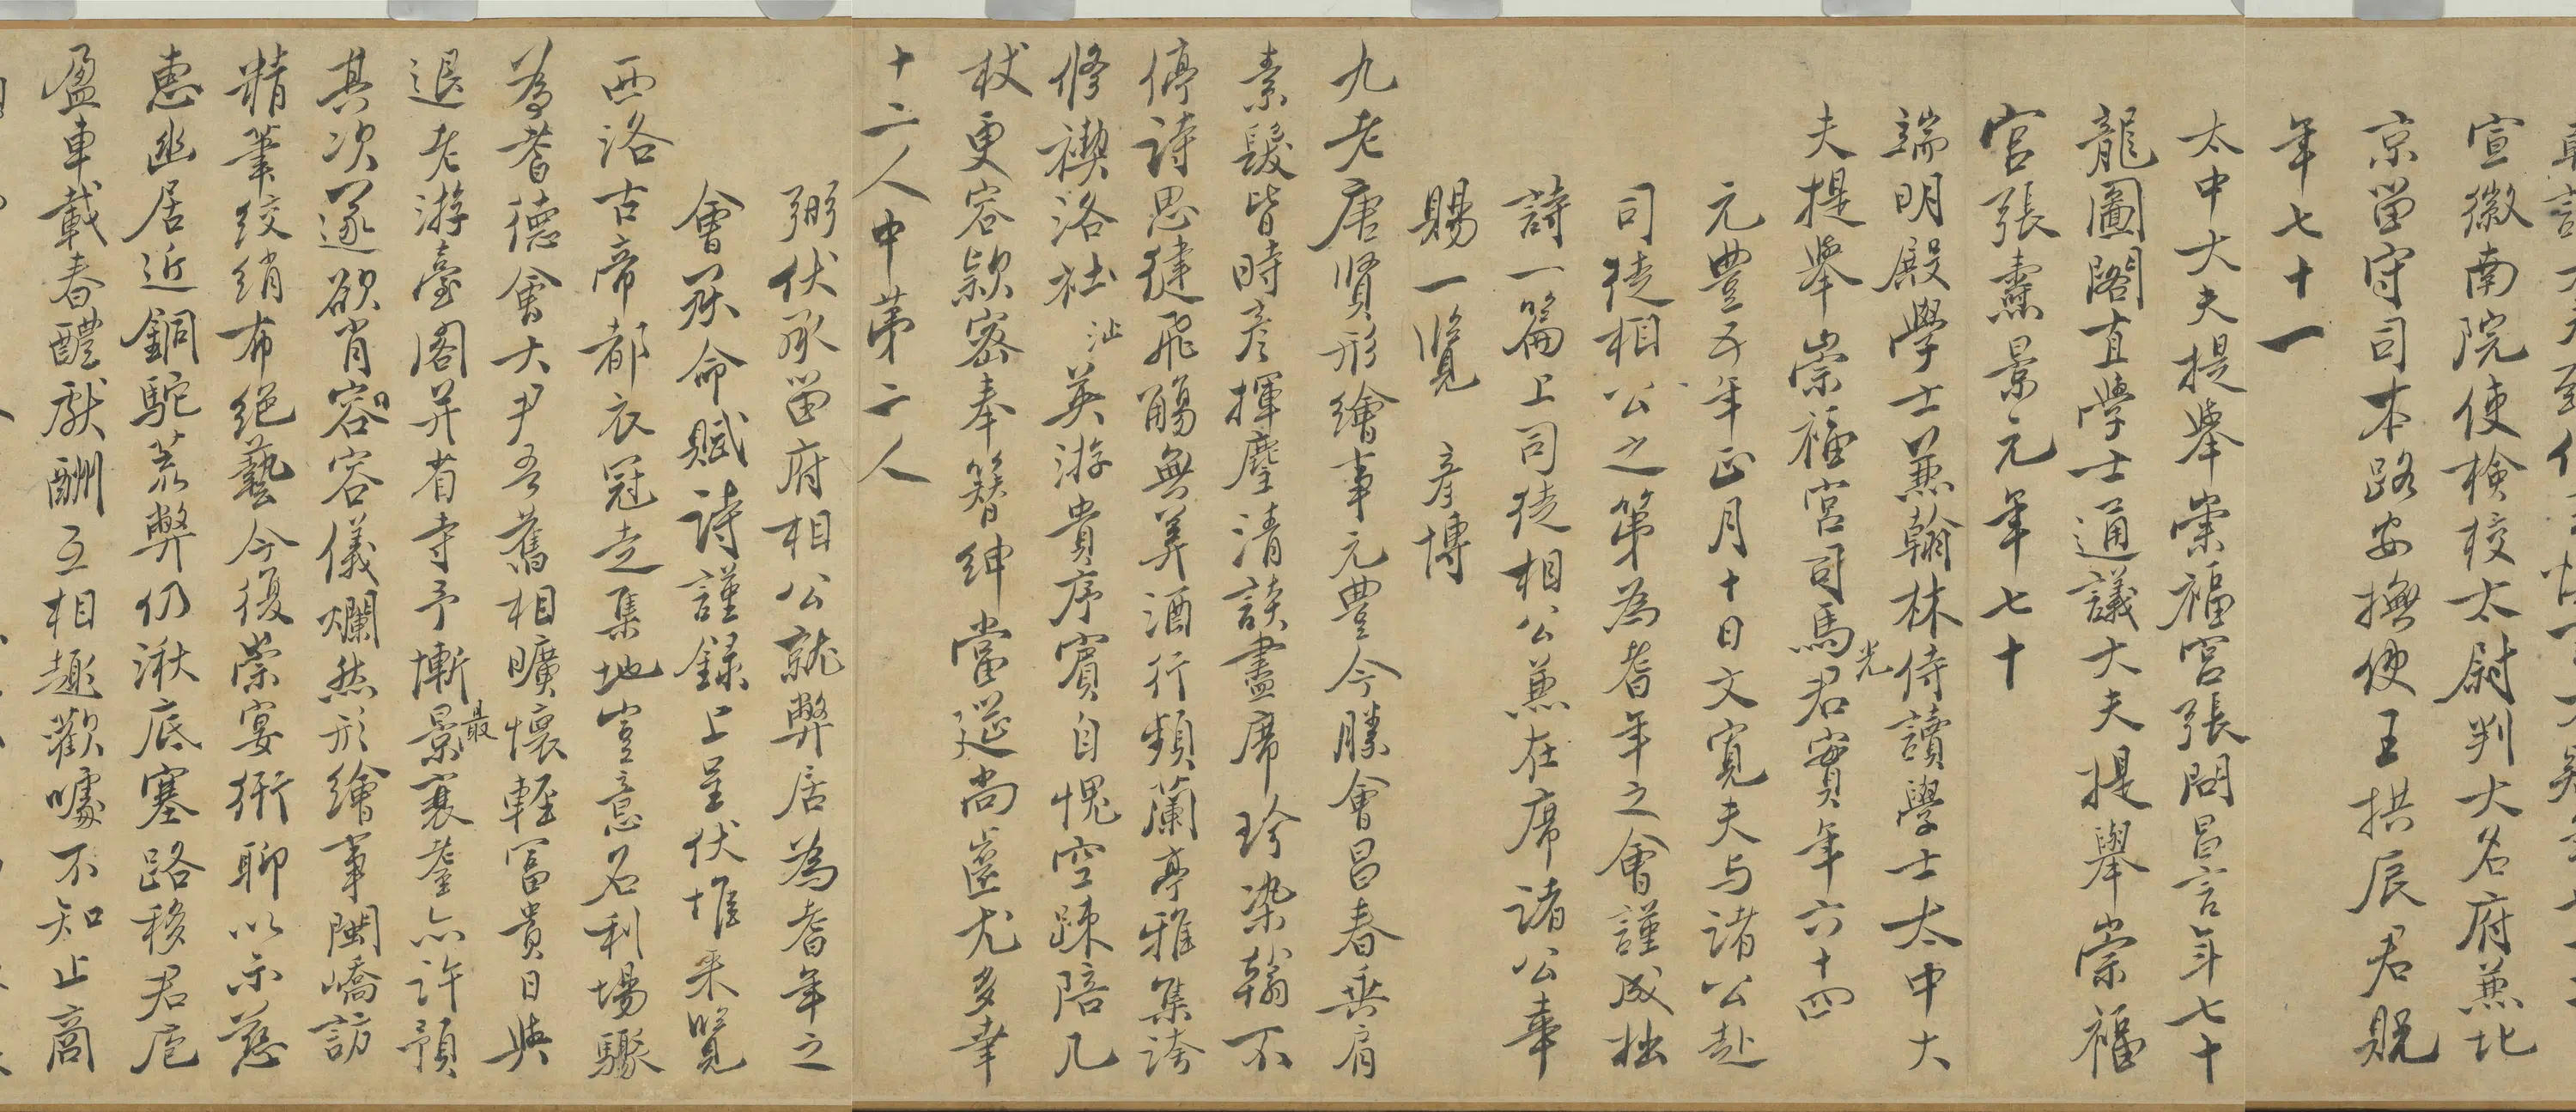 宣徽南院使檢校太尉判大名府兼北
京留守司本路安撫使王拱辰君貺
年七十一
太中大夫提舉崇福宮張問昌言年七十
龍圖閣直學士通議大夫提舉崇福
宮張燾景元年七十
端明殿學士兼翰林侍讀學士太中大
夫提舉崇福宮司馬光君實年六十四
元豐五年正月十日文寬夫与諸公赴
司徒相公之第為耆年之會謹成拙
詩一篇上司徒相公兼在席諸公幸
賜一覽 彥博
九老唐賢形繪事元豐今勝會昌春垂肩
素髮皆時彥揮麈清談盡席珍染翰不
停詩思健飛觴無筭酒行頻蘭亭雅集誇
修禊洛社英游貴序賓自愧空疎陪几
杖更容欵密奉簪紳當筵尚齒尤多幸
十二人中第二人
弼伏承留府相公就弊居為耆年之
會承命賦詩謹録上呈伏惟采覽
西洛古帝都衣冠走集地豈意名利場驟
為耆德會大尹吾舊相曠懷輕富貴日與
退老游臺閣并省寺予慚最衰耋亦許預
其次遂欲肖容容儀爛然形繪事閩嶠訪
精筆紋綃布絕藝今復崇宴衎聊以示慈
惠幽居近銅駝荒弊仍湫底塞路移君庖
盈車載春醴獻酬互相趣歡噱不知止商